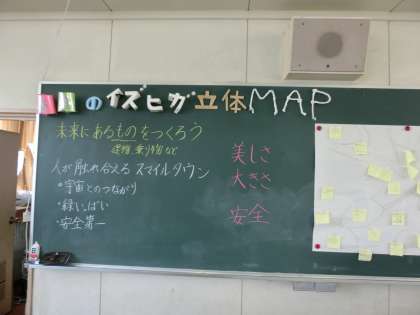 のイズヒガ立体MAP
未来にあるものをつくろう
建物、乗り物など
人が触れ合える スマイルタウン
・宇宙とのつながり
・緑いっぱい
・安全第一
美しさ
大きさ
安全